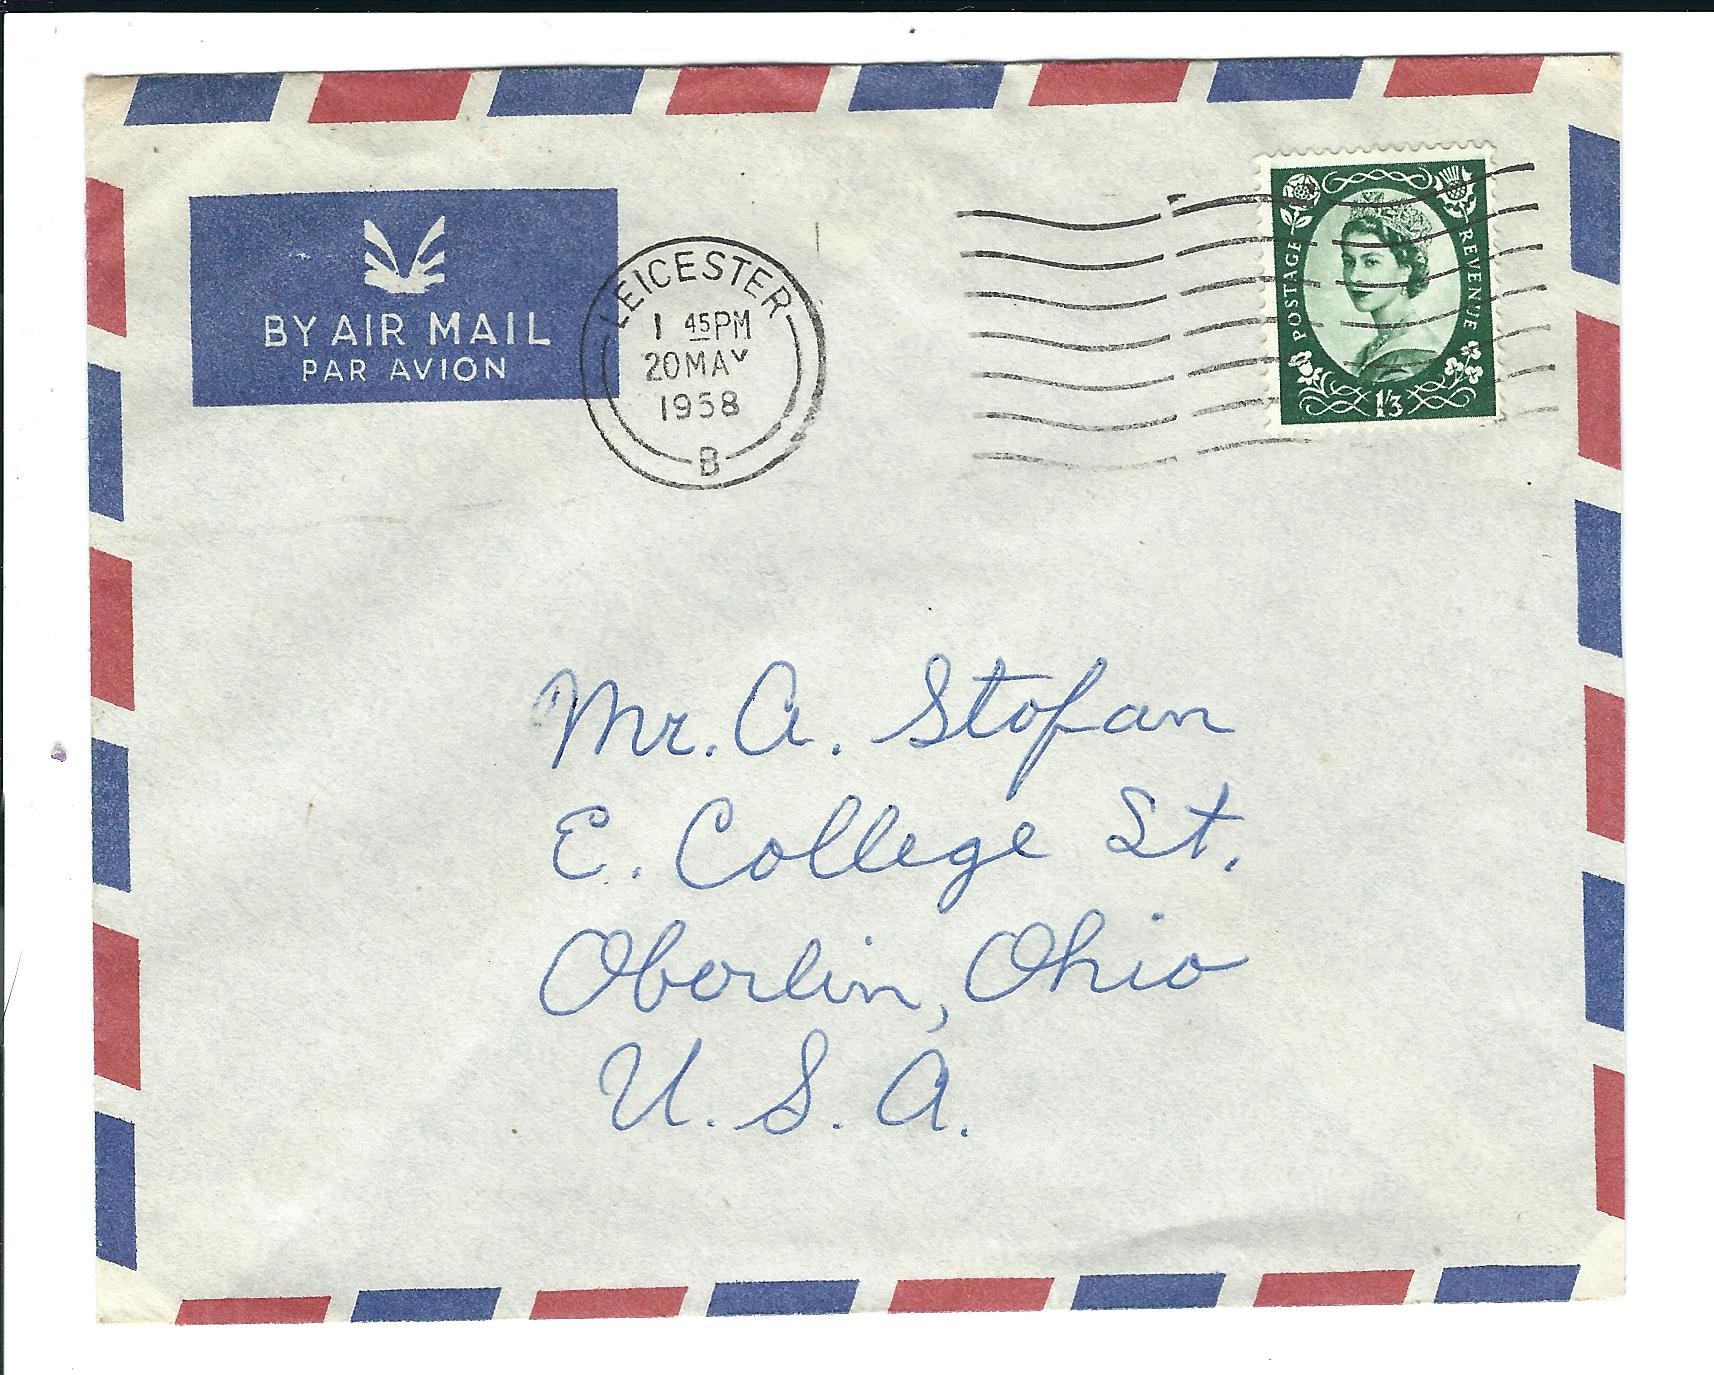 BY AIR MAIL
PAR AVION
LEICESTER
1 45 PM
20 MAY
1958
B
POSTAGE
REVENUE
1/3
Mr. A. Stofan
E. College St.
Oberlin, Ohio
U. S. A.